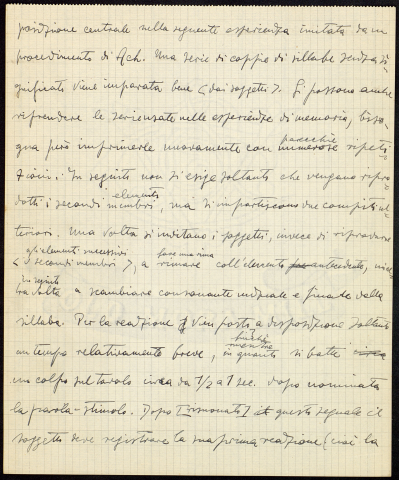 posizione centrale nella seguente esperienza imitata da un
procedimento di Ach. Una serie di coppie di sillabe senza si-
gnificato viene imparata bene < dai soggetti >. Si possono anche
riprendere le serie usate nelle esperienze di memoria, biso-
gna però imprimerle nuovamente con numerose parecchie ripeti-
zioni. In seguito non si esige soltanto che vengano ripro-
dotti i secondi membri, elementi ma si impartiscono due compiti ul-
teriori. Una volta si invitano i soggetti, invece di riprodurre
gli elementi successivi
< i secondi membri >, a rimare fare una rima coll'elemento antecedente,
in seguito
a scambiare consonante iniziale e finale della
sillaba. Per la reazione vien posto a disposizione soltanto
un tempo relativamente breve, in quanto si batte
un colpo sul tavolo circa da 1/2 a 1 sec. dopo nominata
la parola-stimolo. Dopo [risuonato] questo segnale il
soggetto deve registrare la sua prima reazione (cioè la